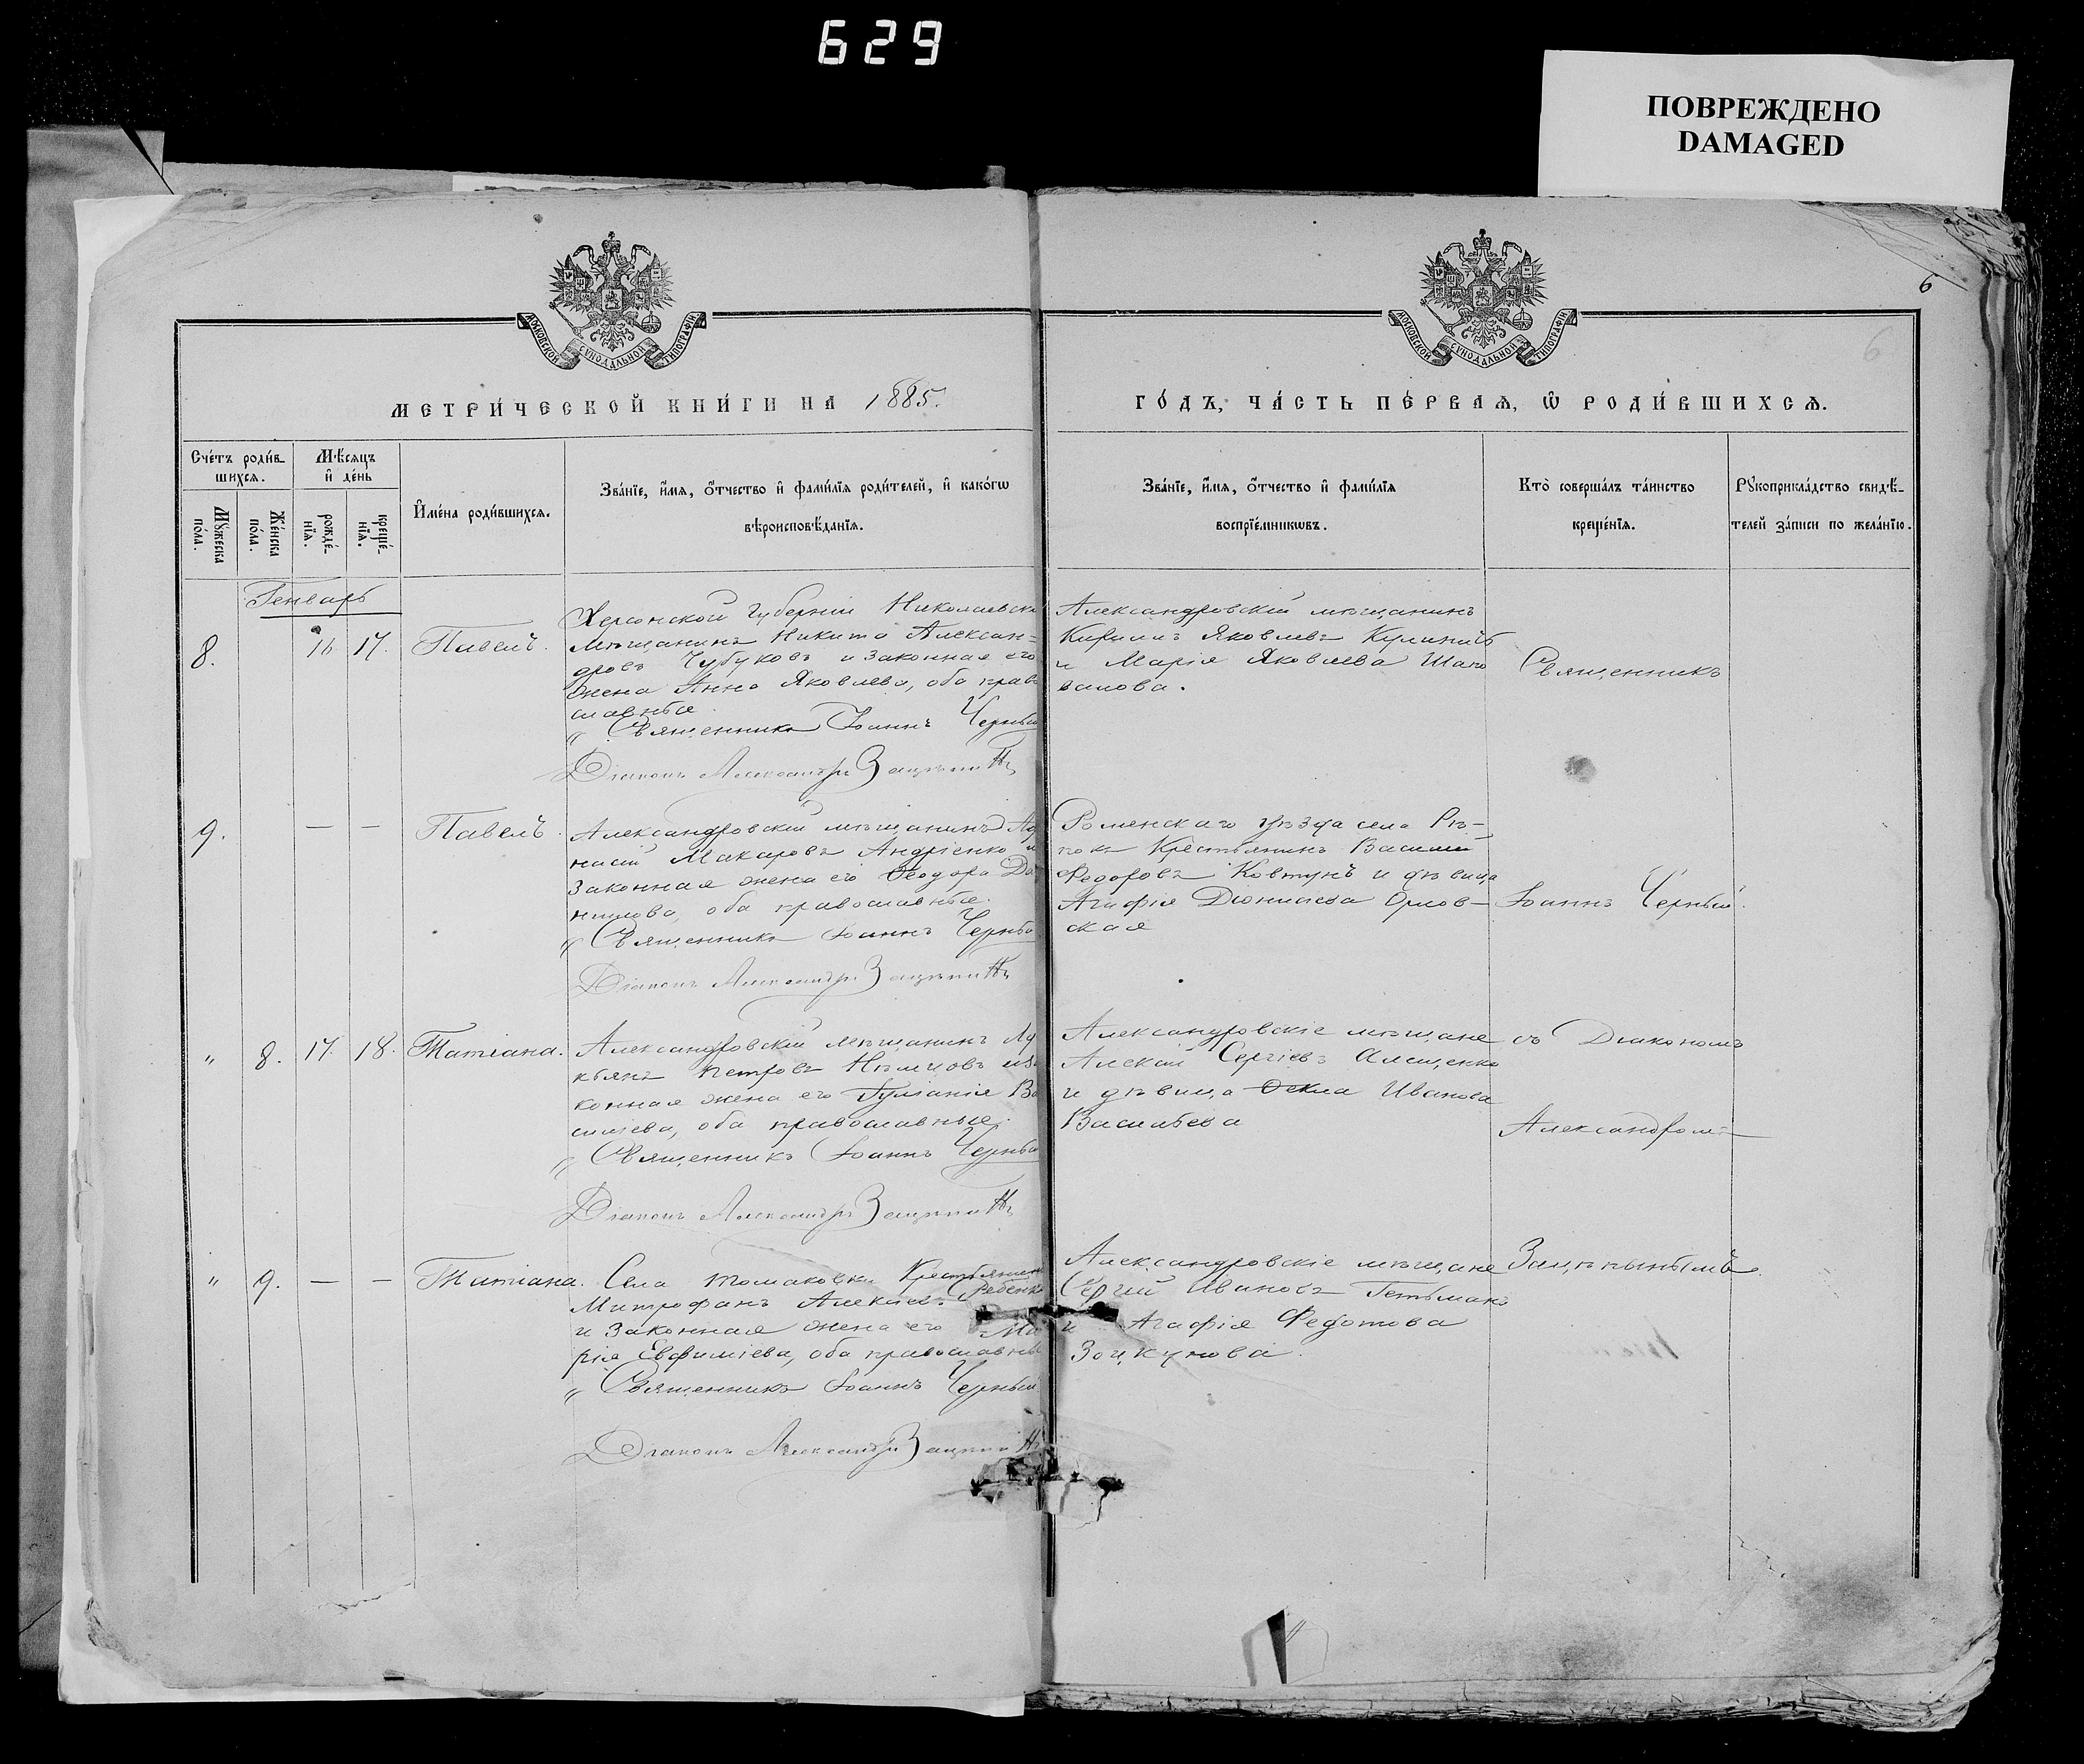 629
ПОВРЕЖДЕНО
DAMAGED
6
6
МОСКОВСКОЙ СѴНОДАЛЬНОЙ ТИПОГРАФІИ
МОСКОВСКОЙ СѴНОДАЛЬНОЙ ТИПОГРАФІИ
МЕТРИ́ЧЕСКОЙ КНИ́ГИ НА 1885.
ГО́ДЪ, ЧА́СТЬ ПЕ́РВАѦ, Ѿ РОДИ́ВШИХСѦ.
Сче́тъ роди́в-
шихсѧ.
Мѣ́сѧцъ
и҆ де́нь
Мꙋ́жеска
по́ла.
Же́нска
по́ла.
рожде́-
нїѧ.
креще́-
нїѧ.
И҆мена̀ роди́вшихсѧ.
Зва́нїе, и҆́мѧ, ѻ҆́тчество и҆ фами́лїѧ роди́телей, и҆ како́гѡ
вѣроисповѣ́данїѧ.
Зва́нїе, и҆́мѧ, ѻ҆́тчество и҆ фами́лїѧ
воспрїе́мникѡвъ.
Кто̀ соверша́лъ та́инство
креще́нїѧ.
Рꙋкоприкла́дство свидѣ́-
телей за́писи по жела́нїю.
Генварь
8. 16 17. Павелъ.
Херсонской губерніи Николаевск
мѣщанинъ Никита Алексан-
дровъ Чубуковъ и законная его
жена Анна Яковлева, оба прав
славные
„ Священникъ Іоаннъ Черный
Діаконъ Александръ
Александровскій мѣщанинъ
Кирилъ Яковлевъ
и Марія Яковлева Шапо
валова.
Священникъ
9. — — Павелъ.
Александровскій мѣщанинъ
насій Макаровъ Андріенко и
законная жена его Ѳеодора Да
нилова, оба православные.
„ Священникъ Іоаннъ Черный
Діаконъ Александръ
Роменскаго уѣзда села Рѣ-
покъ Крестьянинъ Василій
Федоровъ Ковтунъ и дѣвица
Агафія Діонисіева Орлов-
ская
Іоаннъ Черный.
„ 8. 17. 18. Татіана.
Александровскій мѣщанинъ Лу
кьянъ Петровъ Нѣмцовъ и за
конная жена его Іуліанія Ва
силіева, оба православные.
„ Священникъ Іоаннъ Черный
Діаконъ Александръ
Александровскіе мѣщане
Алексій Сергіевъ
и дѣвица Ѳекла Иванова
Васильева
съ Діакономъ
Александромъ
„ 9. — — Татіана.
Села Томаковки Крестьянинъ
Митрофанъ Алексѣевъ
и законная жена его Ма
рія Евфиміева, оба православные
„ Священникъ Іоаннъ Черный
Діаконъ Александръ
Александровскіе мѣщане
Сергій Ивановъ Гетьманъ
и Агафія Федотова